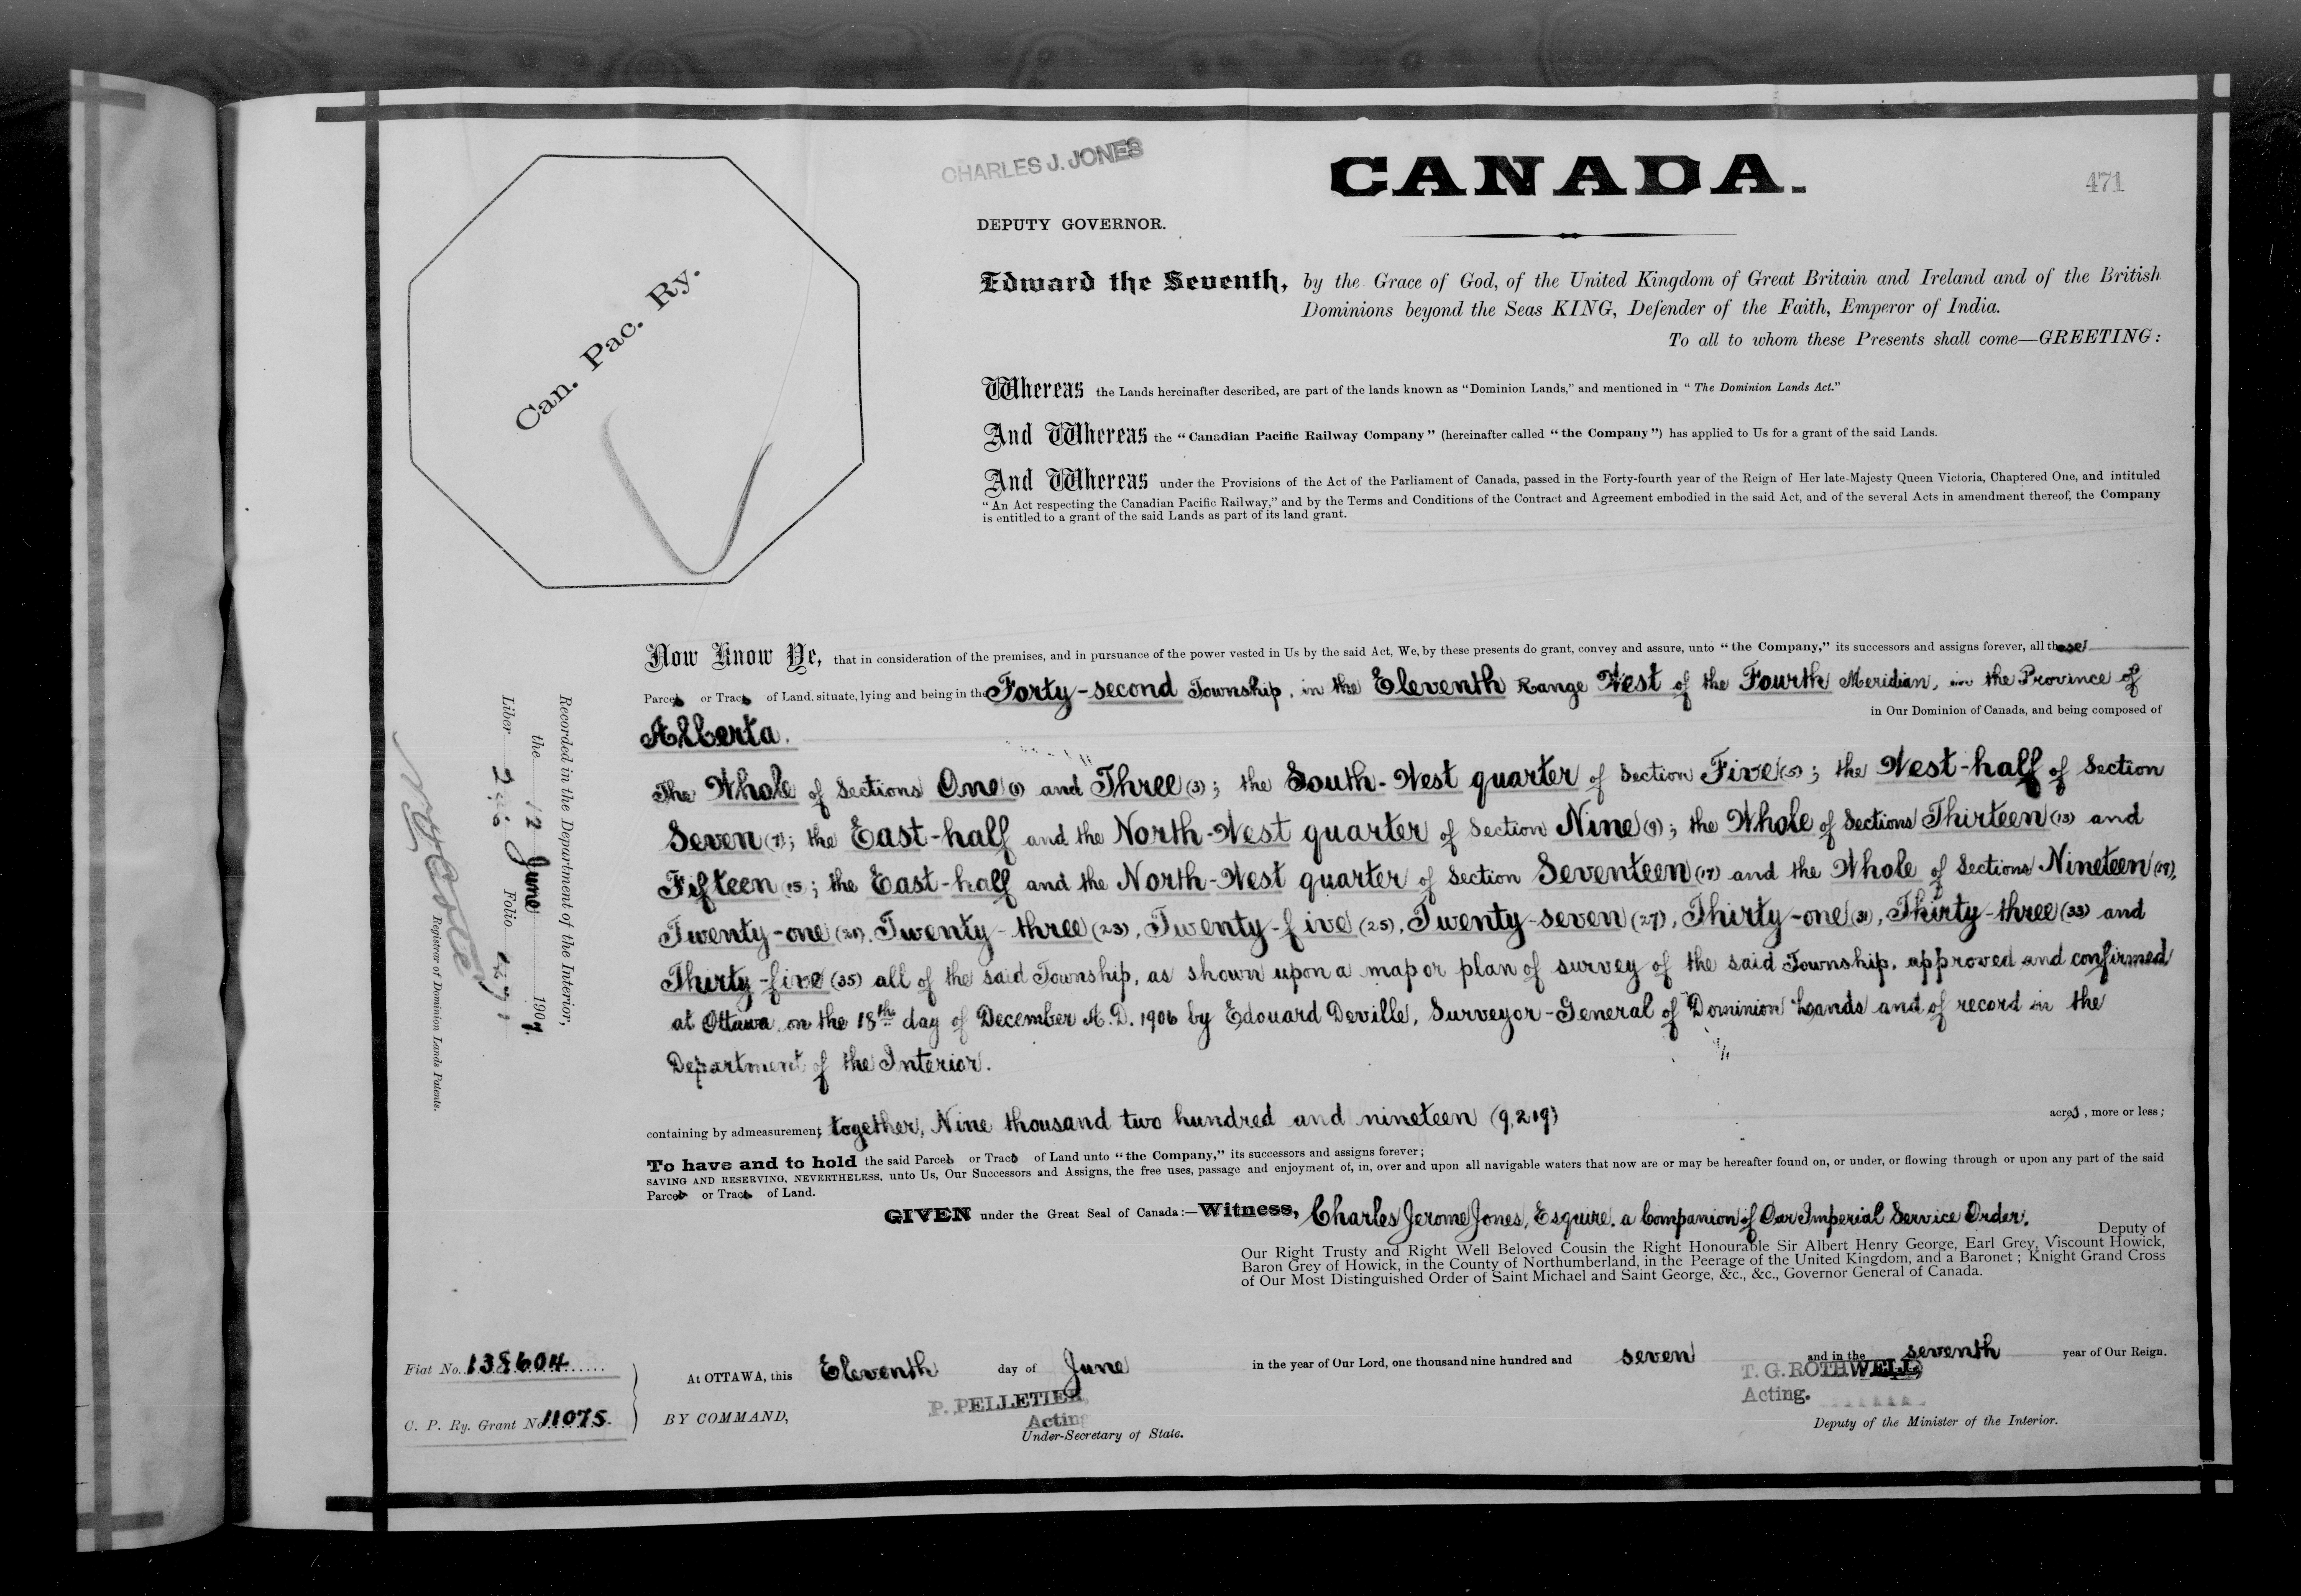 CHARLES J. JONES
CANADA.
471
DEPUTY GOVERNOR.
Can. Pac. Ry.
Edward the Seventh, by the Grace of God, of the United Kingdom of Great Britain and Ireland and of the British
Dominions beyond the Seas KING, Defender of the Faith, Emperor of India.
To all to whom these Presents shall come—GREETING:
Whereas the Lands hereinafter described, are part of the lands known as "Dominion Lands," and mentioned in "The Dominion Lands Act."
And Whereas the "Canadian Pacific Railway Company" (hereinafter called "the Company") has applied to Us for a grant of the said Lands.
And Whereas under the Provisions of the Act of the Parliament of Canada, passed in the Forty-fourth year of the Reign of Her late Majesty Queen Victoria, Chaptered One, and intituled
"An Act respecting the Canadian Pacific Railway," and by the Terms and Conditions of the Contract and Agreement embodied in the said Act, and of the several Acts in amendment thereof, the Company
is entitled to a grant of the said Lands as part of its land grant.
Now Know Ye, that in consideration of the premises, and in pursuance of the power vested in Us by the said Act, We, by these presents do grant, convey and assure, unto "the Company," its successors and assigns forever, all those
Parcels or Tracts of Land, situate, lying and being in the Forty-second Township, in the Eleventh Range West of the Fourth Meridian, in the Province of
Alberta. in Our Dominion of Canada, and being composed of
The Whole of Sections One (1) and Three (3); the South-West quarter of Section Five (5); the West-half of Section
Seven (7); the East-half and the North-West quarter of Section Nine (9); the Whole of Sections Thirteen (13) and
Fifteen (15); the East-half and the North-West quarter of Section Seventeen (17) and the Whole of Sections Nineteen (19),
Twenty-one (21), Twenty-three (23), Twenty-five (25), Twenty-seven (27), Thirty-one (31), Thirty-three (33) and
Thirty-five (35) all of the said Township, as shown upon a map or plan of survey of the said Township, approved and confirmed
at Ottawa, on the 18th day of December A.D. 1906 by Edouard Deville, Surveyor-General of Dominion Lands and of record in the
Department of the Interior.
containing by admeasurement, together, Nine thousand two hundred and nineteen (9,219) acres, more or less;
To have and to hold the said Parcels or Tracts of Land unto "the Company," its successors and assigns forever;
SAVING AND RESERVING, NEVERTHELESS, unto Us, Our Successors and Assigns, the free uses, passage and enjoyment of, in, over and upon all navigable waters that now are or may be hereafter found on, or under, or flowing through or upon any part of the said
Parcels or Tracts of Land.
GIVEN under the Great Seal of Canada:—Witness, Charles Jerome Jones, Esquire, a Companion of Our Imperial Service Order,
Deputy of
Our Right Trusty and Right Well Beloved Cousin the Right Honourable Sir Albert Henry George, Earl Grey, Viscount Howick,
Baron Grey of Howick, in the County of Northumberland, in the Peerage of the United Kingdom, and a Baronet; Knight Grand Cross
of Our Most Distinguished Order of Saint Michael and Saint George, &c., &c., Governor General of Canada.
At OTTAWA, this Eleventh day of June in the year of Our Lord, one thousand nine hundred and seven and in the seventh year of Our Reign.
BY COMMAND,
P. PELLETIER,
Acting
Under-Secretary of State.
T. G. ROTHWELL,
Acting.
Deputy of the Minister of the Interior.
Fiat No. 138604
C. P. Ry. Grant No. 11075.
Recorded in the Department of the Interior,
the 12 June 1907.
Liber Folio
Registrar of Dominion Lands Patents.